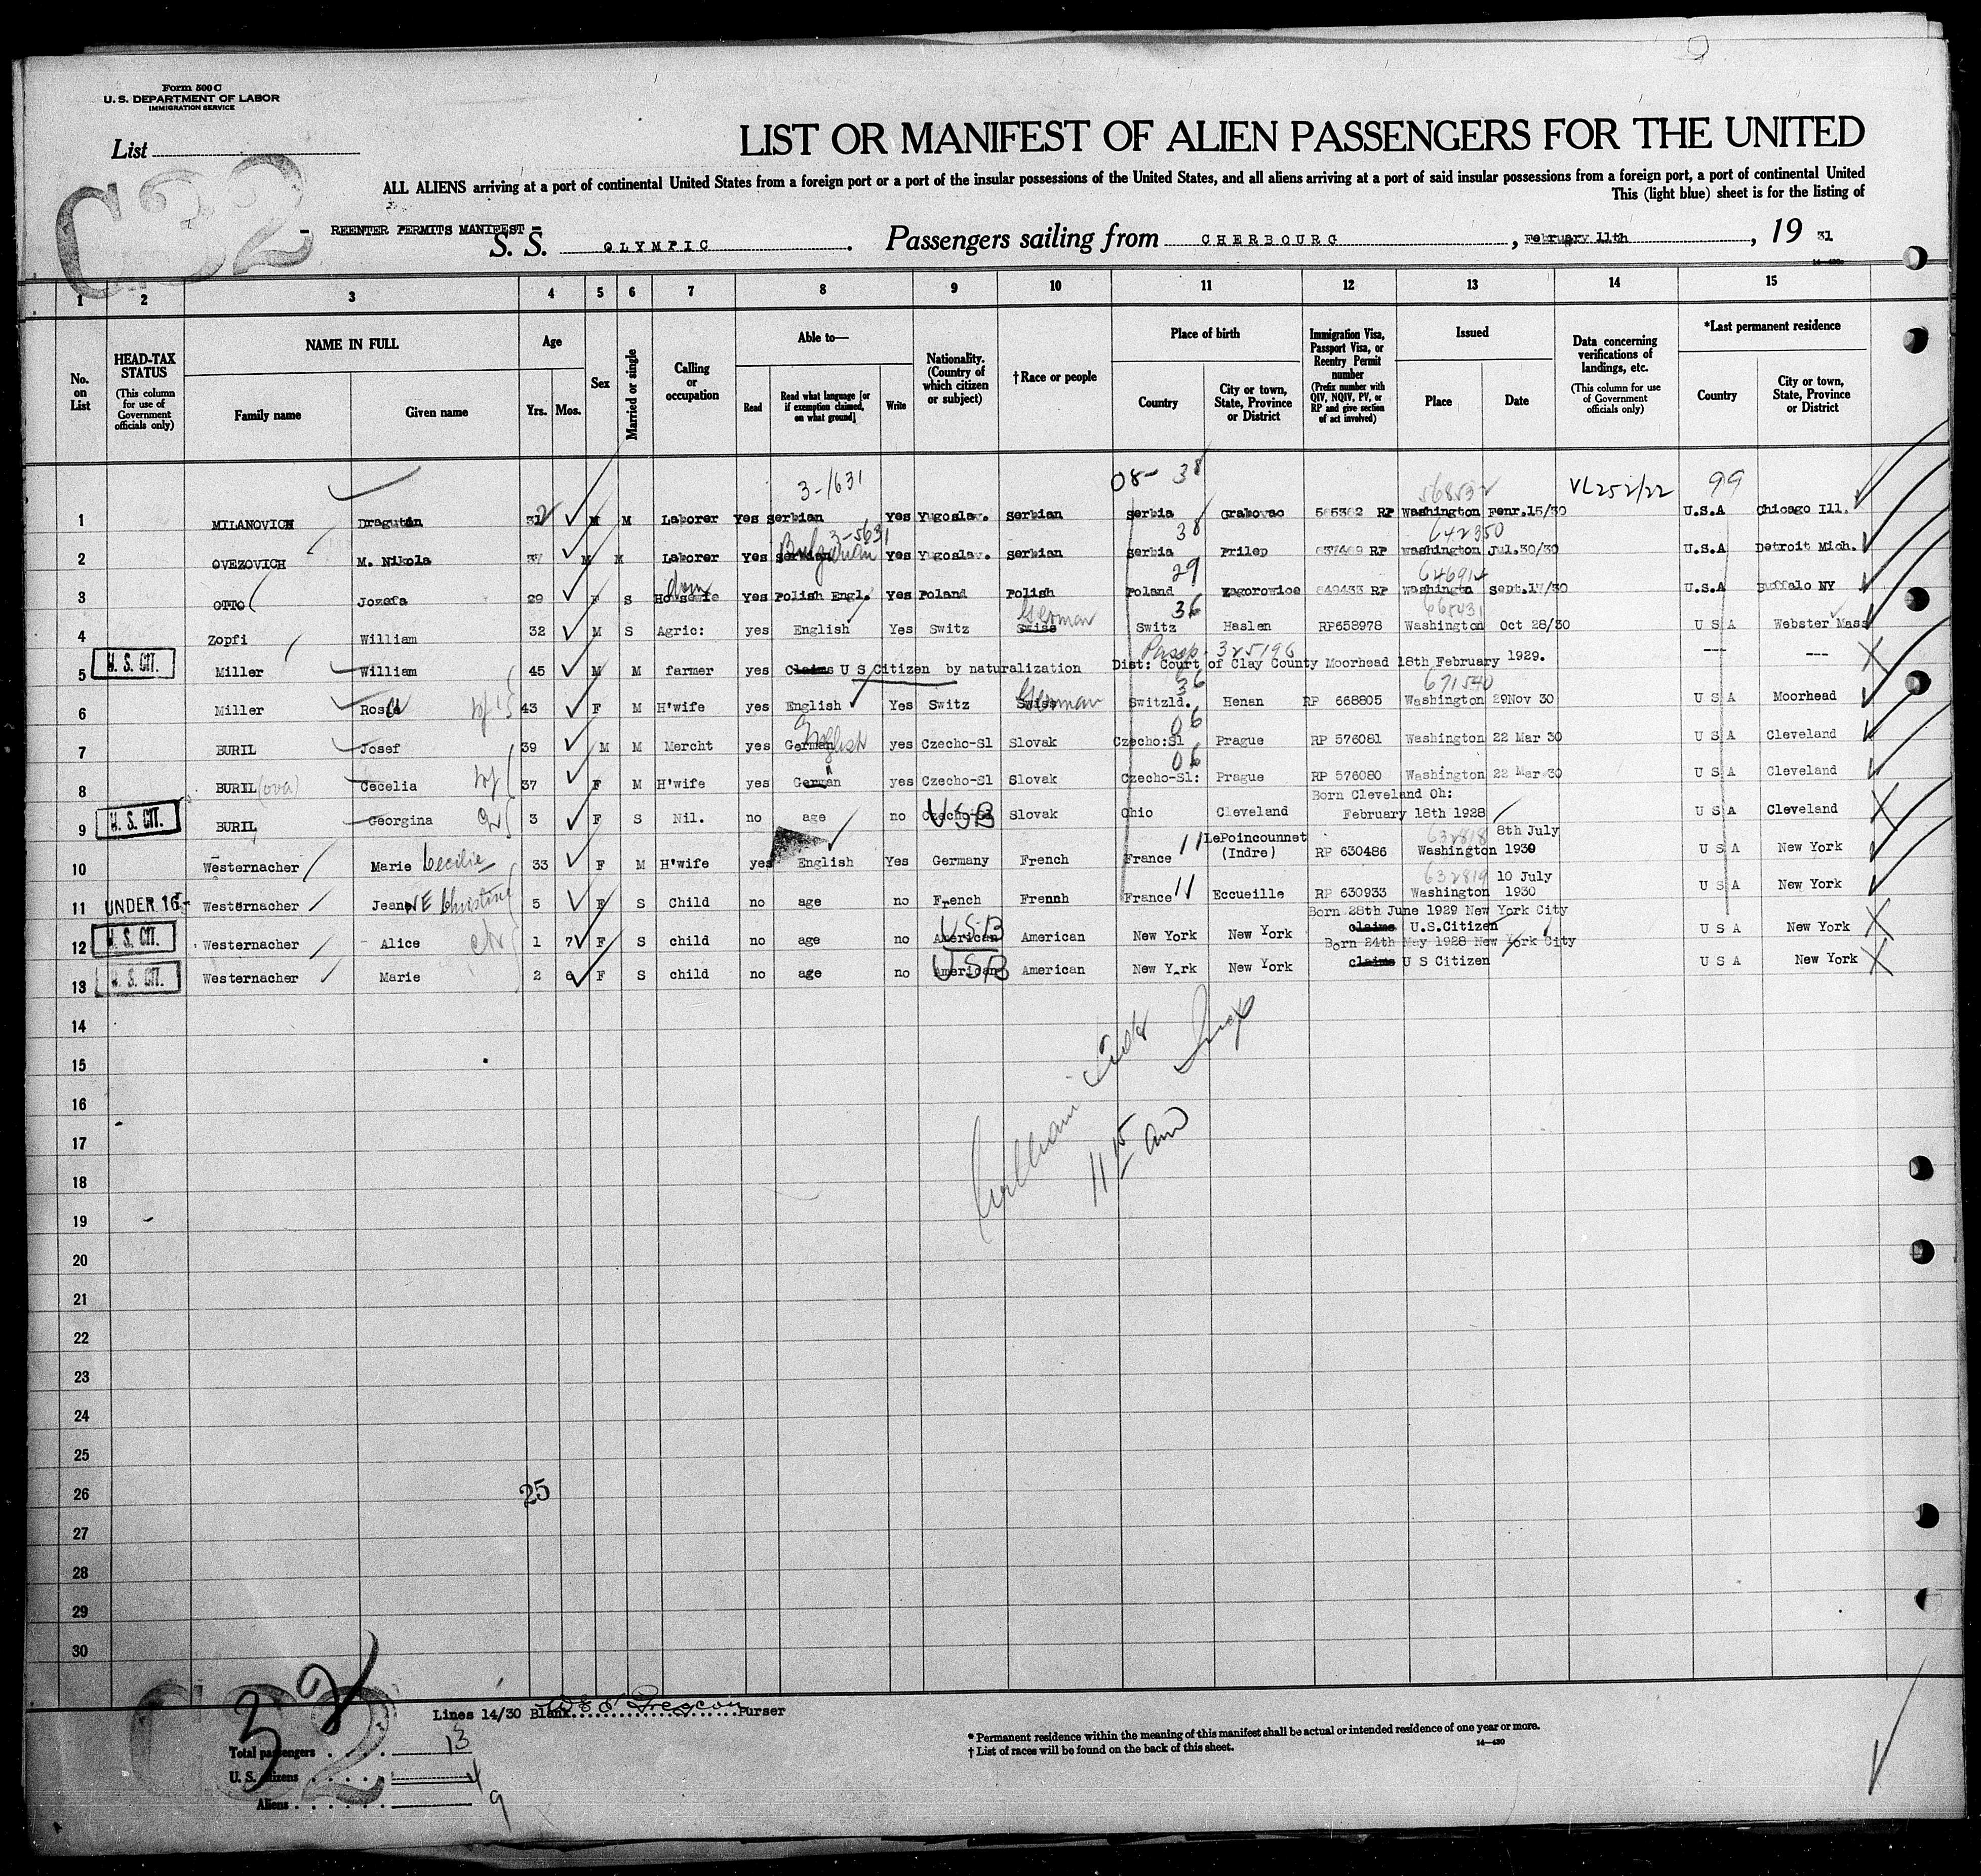 Form 500 C
U. S. DEPARTMENT OF LABOR
IMMIGRATION SERVICE
List
C 32
LIST OR MANIFEST OF ALIEN PASSENGERS FOR THE UNITED
ALL ALIENS arriving at a port of continental United States from a foreign port or a port of the insular possessions of the United States, and all aliens arriving at a port of said insular possessions from a foreign port, a port of continental United
This (light blue) sheet is for the listing of
- REENTER PERMITS MANIFEST -
S. S. OLYMPIC. Passengers sailing from CHERBOURG, February 11th, 19 31
14-430
1 2 3 4 5 6 7 8 9 10 11 12 13 14 15
No. on List
HEAD-TAX STATUS (This column for use of Government officials only)
NAME IN FULL Family name Given name
Age Yrs. Mos.
Sex
Married or single
Calling or occupation
Able to— Read Read what language [or if exemption claimed, on what ground] Write
Nationality. (Country of which citizen or subject)
†Race or people
Place of birth Country City or town, State, Province or District
Immigration Visa, Passport Visa, or Reentry Permit number (Prefix number with QIV, NQIV, PV, or RP and give section of act involved)
Issued Place Date
Data concerning verifications of landings, etc. (This column for use of Government officials only)
*Last permanent residence Country City or town, State, Province or District
3-1631 08- 38 568532 VL252/22 99
1 MILANOVICH Dragutin 32 M M Laborer Yes Serbian Yes Yugoslav. Serbian Serbia Grabovac RP Washington 15/30 U.S.A Chicago Ill.
3-5631 38 642350
2 OVEZOVICH M. Nikola 37 M M Laborer Yes Serbian Bulgarian Yes Yugoslav. Serbian Serbia Prilep RP Washington Jul.30/30 U.S.A Detroit Mich.
dom 29 646914
3 OTTO Jozefa 29 F S Yes Polish Engl. Yes Poland Polish Poland Zagorowice RP Washington Sept.17/30 U.S.A Buffalo NY
German 36
4 Zopfi William 32 M S Agric: yes English Yes Switz Swiss Switz Haslen RP658978 Washington Oct 28/30 U S A Webster Mass
U. S. CIT. Passp. 325196
5 Miller William 45 M M farmer yes Claims U S Citizen by naturalization Dist: Court of Clay County Moorhead 18th February 1929. --- ---
36 671540
6 Miller Rosa wf 43 F M H'wife yes English Yes Switz Swiss German Switzld. Henan RP 668805 Washington 29Nov 30 U S A Moorhead
English 06
7 BURIL Josef 39 M M Mercht yes German yes Czecho-Sl Slovak Czecho:Sl Prague RP 576081 Washington 22 Mar 30 U S A Cleveland
" 06
8 BURIL (ova) Cecelia wf 37 F M H'wife yes German yes Czecho-Sl Slovak Czecho-Sl: Prague RP 576080 Washington 22 Mar 30 U S A Cleveland
Born Cleveland Oh:
U. S. CIT.
9 BURIL Georgina 3 F S Nil. no age no Czecho-Sl USB Slovak Ohio Cleveland February 18th 1928 U S A Cleveland
11 LePoincounnet 632818 8th July
10 Westernacher Marie Cecilie 33 F M H'wife yes English Yes Germany French France (Indre) RP 630486 Washington 1930 U S A New York
632819 10 July
11 UNDER 16 Westernacher Jeanne Christine 5 F S Child no age no French French France 11 Eccueille RP 630933 Washington 1930 U S A New York
Born 28th June 1929 New York City
U. S. CIT.
12 Westernacher Alice 1 7 F S child no age no American USB American New York New York claims U.S.Citizen U S A New York
Born 24th May 1928 New York City
U. S. CIT.
13 Westernacher Marie 2 F S child no age no American USB American New York New York claims U S Citizen U S A New York
14
15
16
17
11 15 am
18
19
20
21
22
23
24
25
26 25
27
28
29
30
C 32
32
Lines 14/30 Blank Purser
Total passengers 13
U. S. citizens 4
Aliens 9
* Permanent residence within the meaning of this manifest shall be actual or intended residence of one year or more.
† List of races will be found on the back of this sheet.
14-430